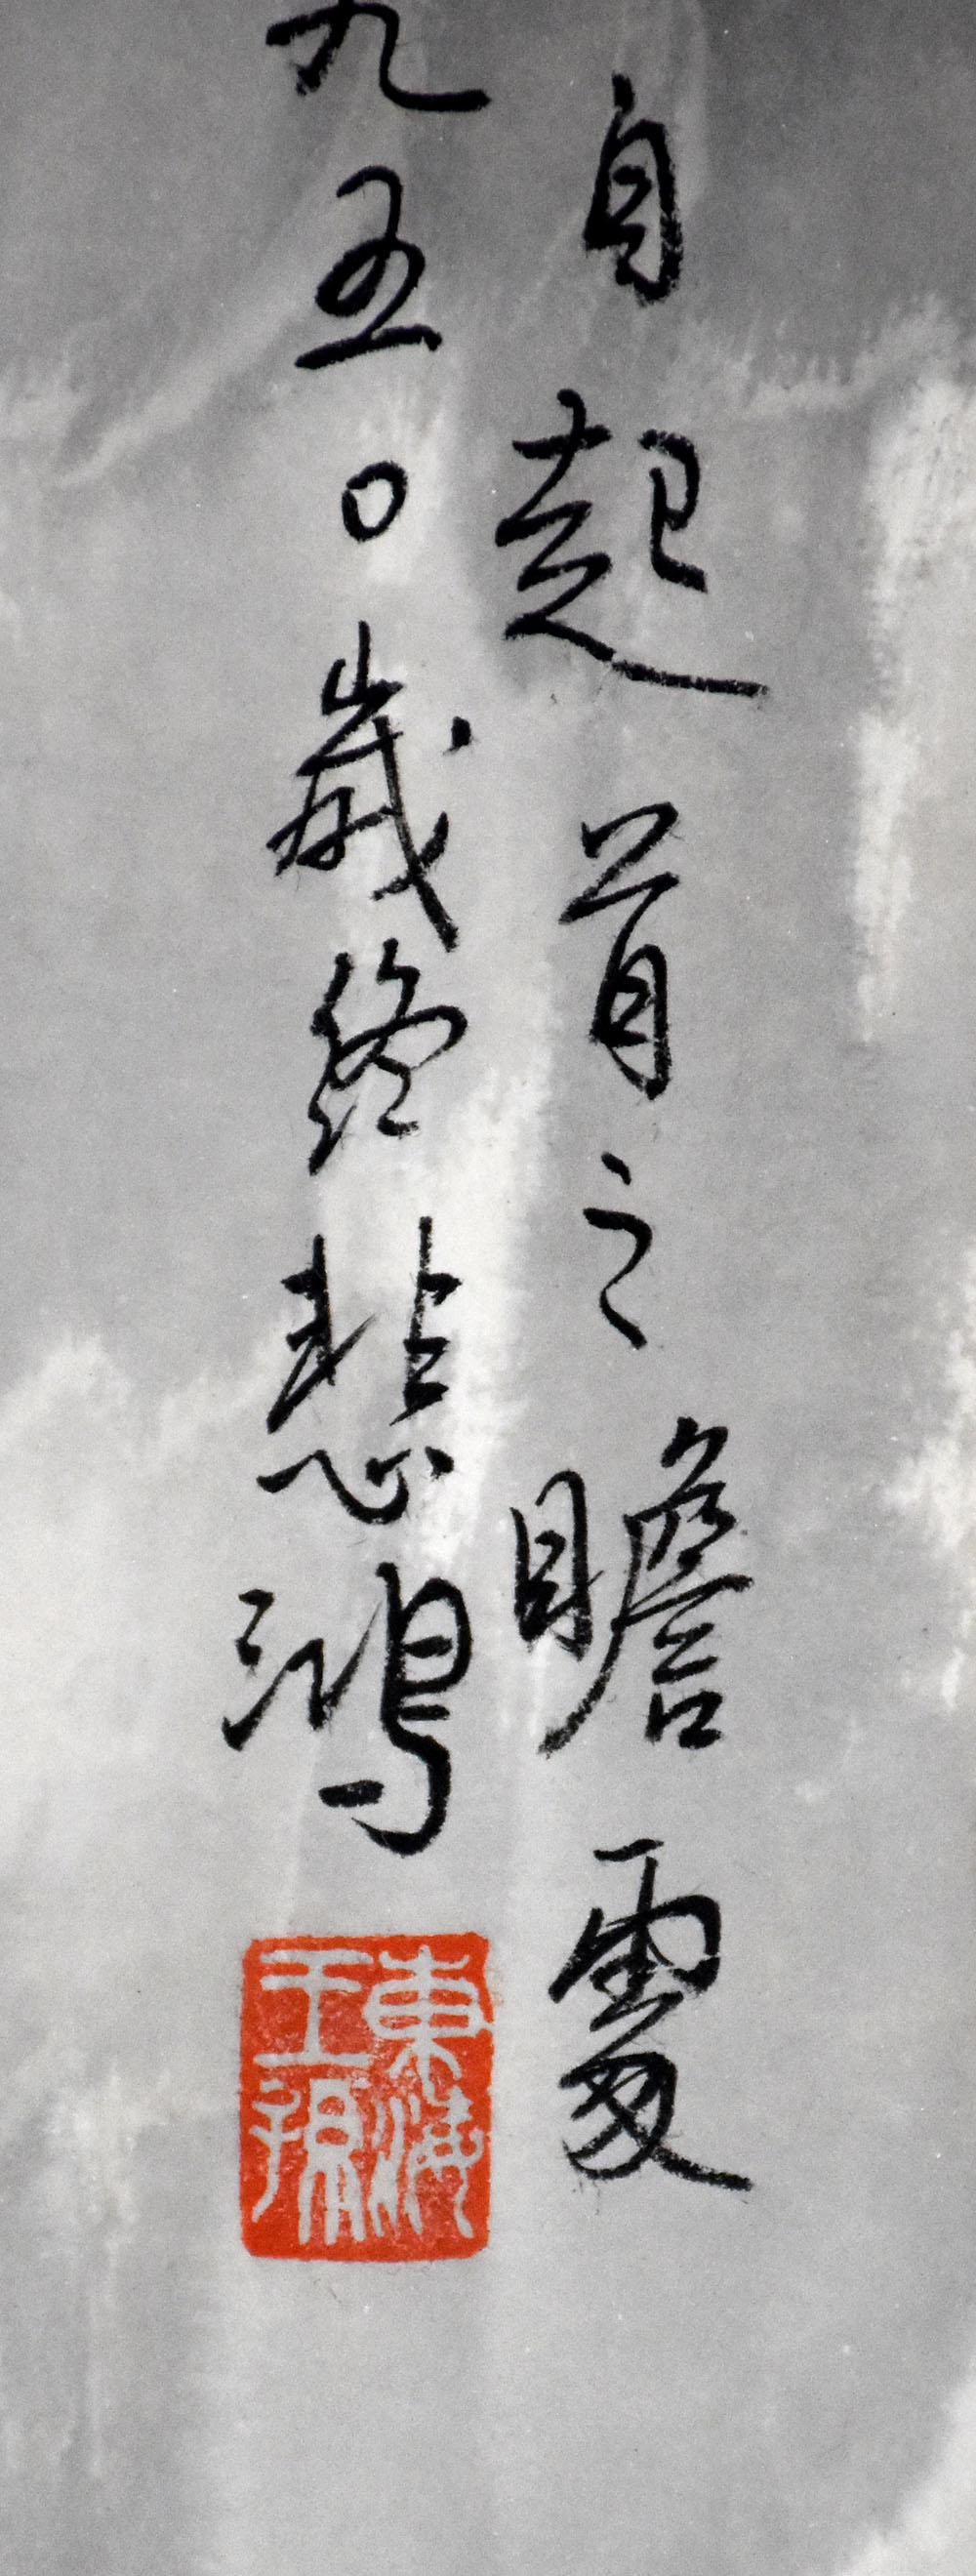 自起首之瞻處
九五〇歲終悲鴻
東海
王孫